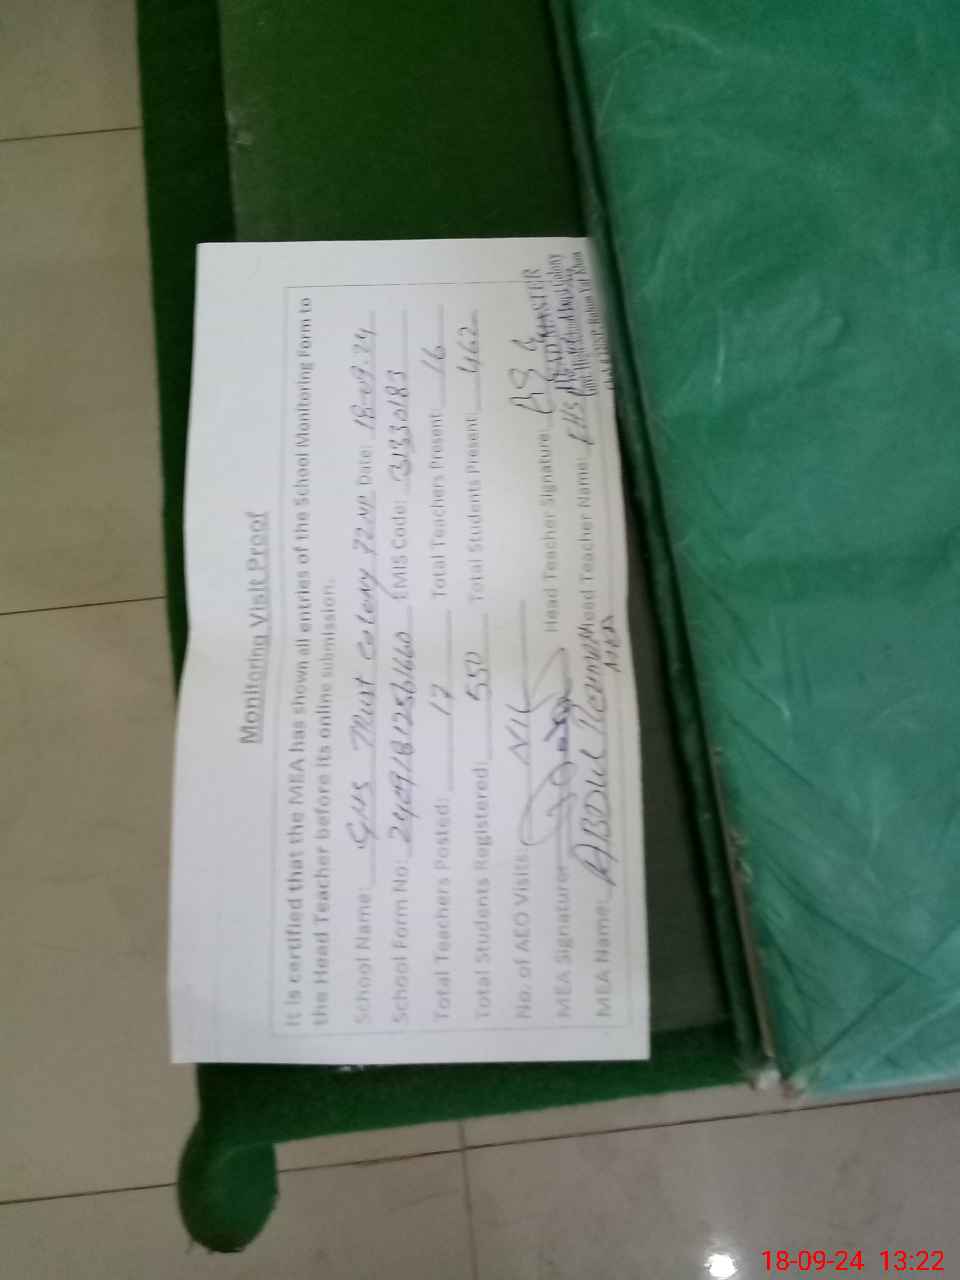 Monitoring Visit Proof
It is certified that the MEA has shown all entries of the School Monitoring Form to
the Head Teacher before its online submission.
School Name: GHS Must Colony 72NP Date: 18-09-24
School Form No: EMIS Code: 31330183
Total Teachers Posted: 17 Total Teachers Present: 16
Total Students Registered: 550 Total Students Present: 462
No. of AEO Visits: NIL
MEA Signature: Head Teacher Signature:
HEAD MASTER
MEA Name: ABDUL Head Teacher Name:
MEA
18-09-24 13:22